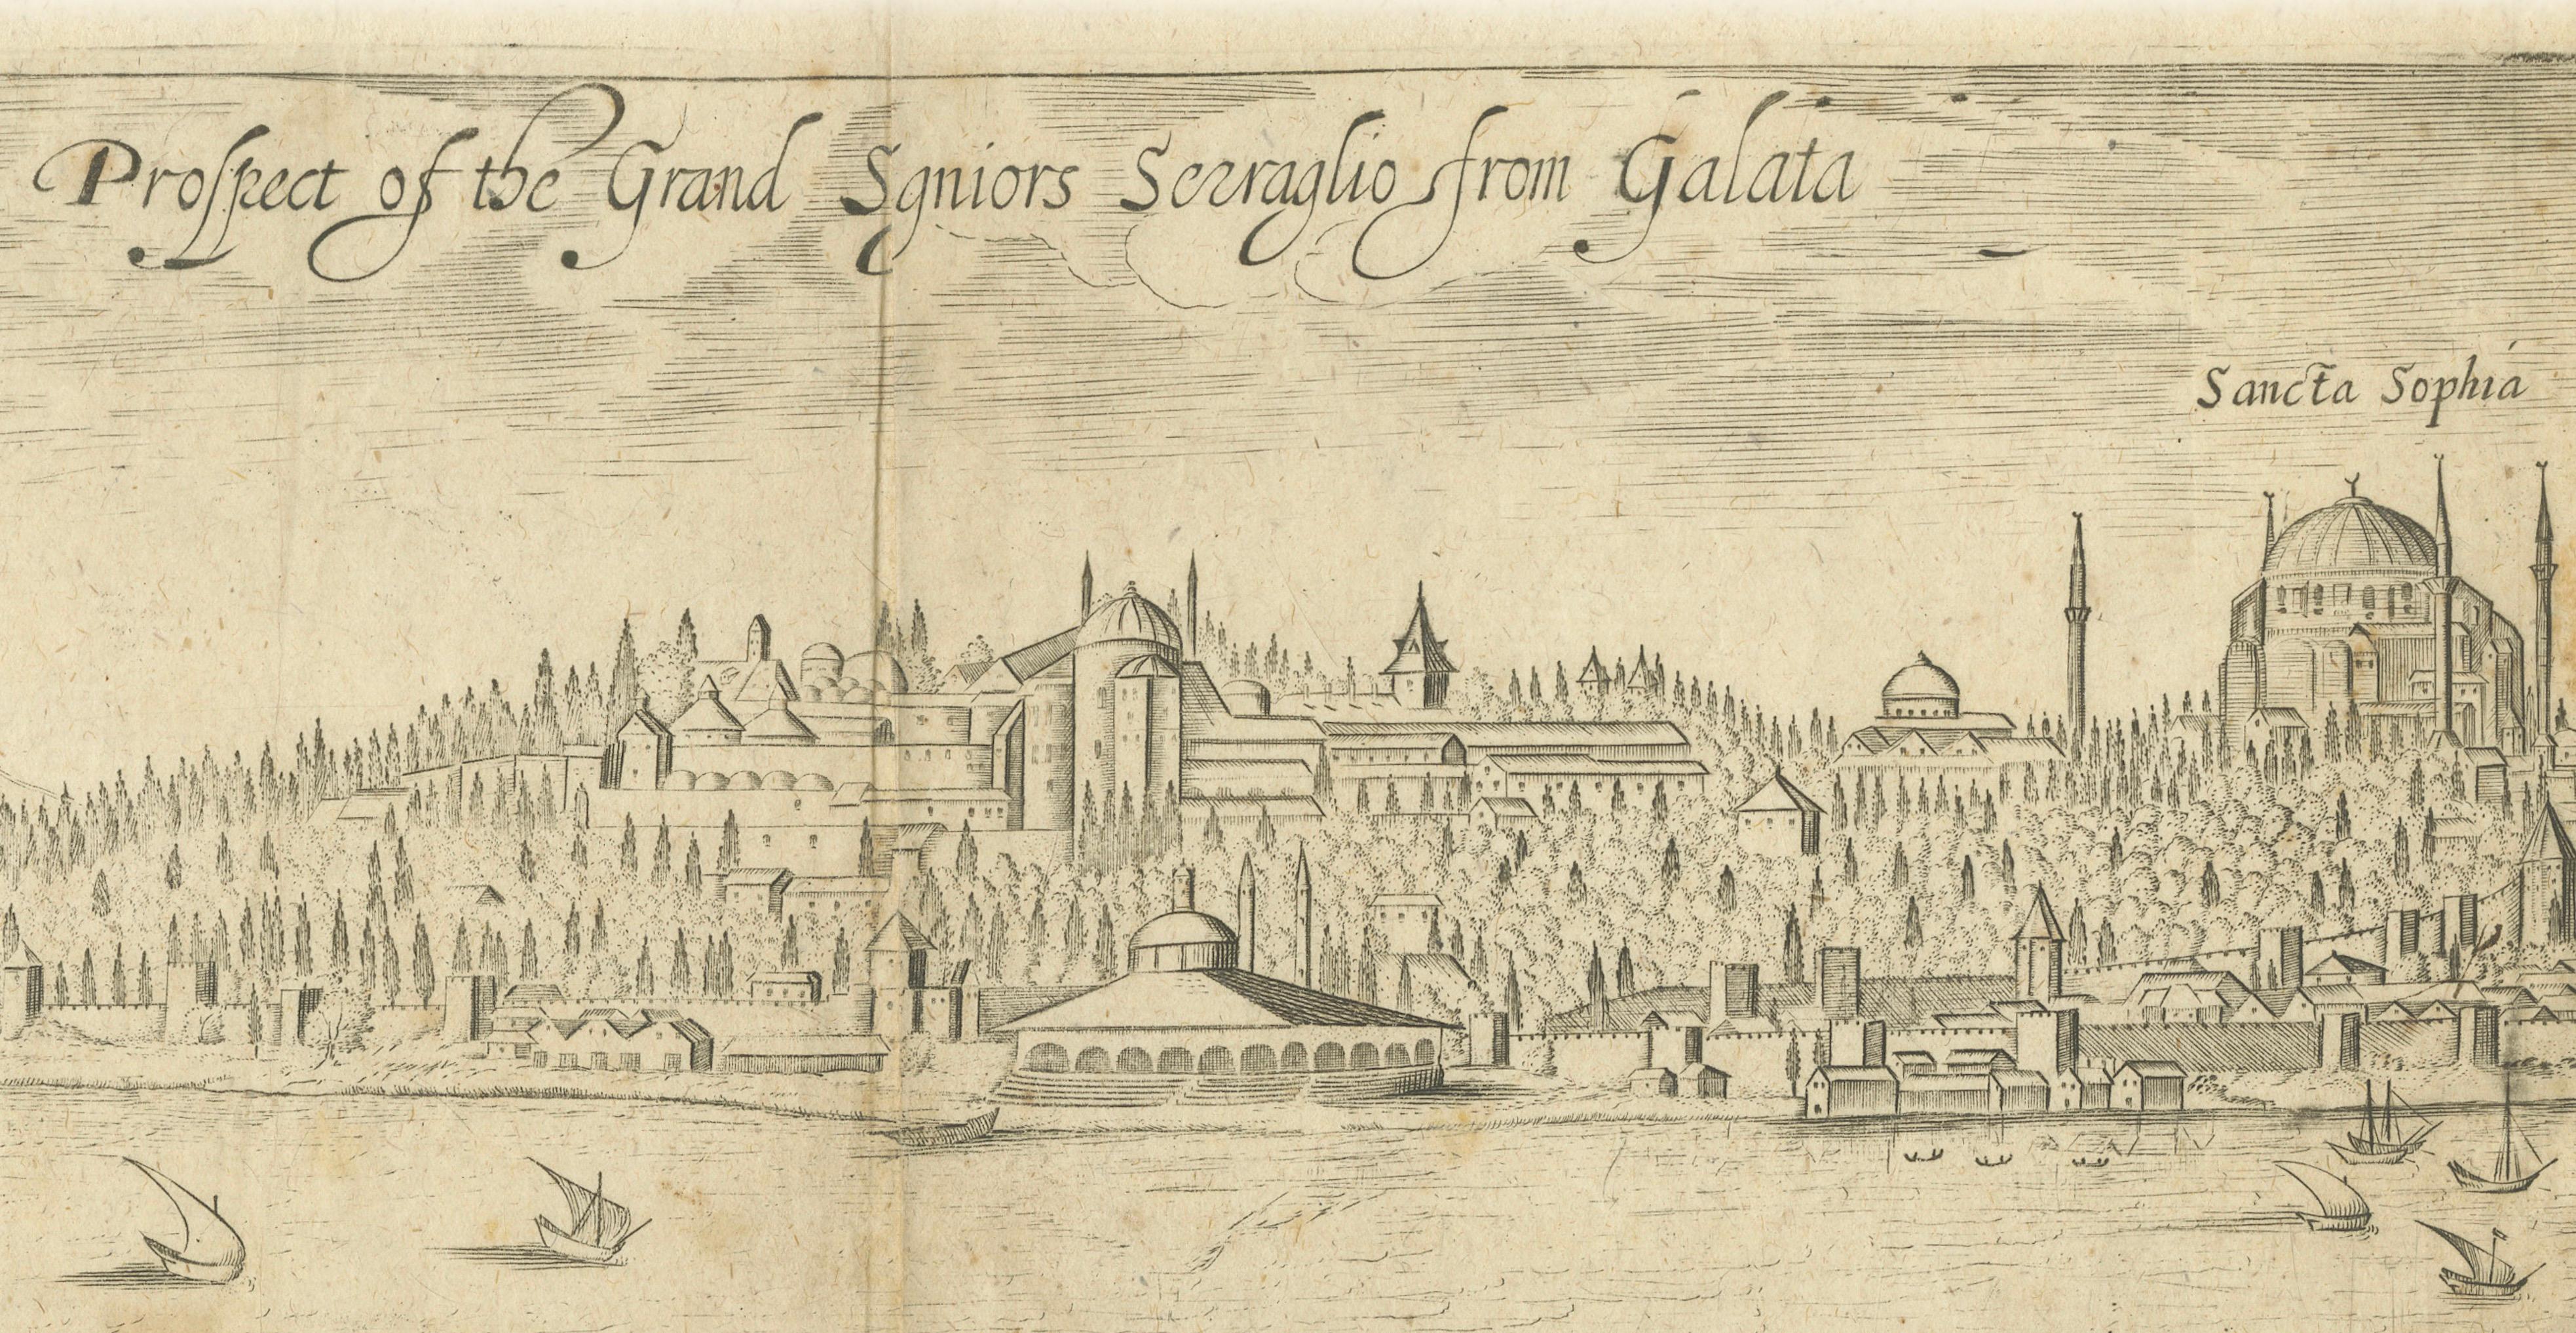 Proſpect of the Grand Sgniors Serraglio from Galata
Sancta Sophia